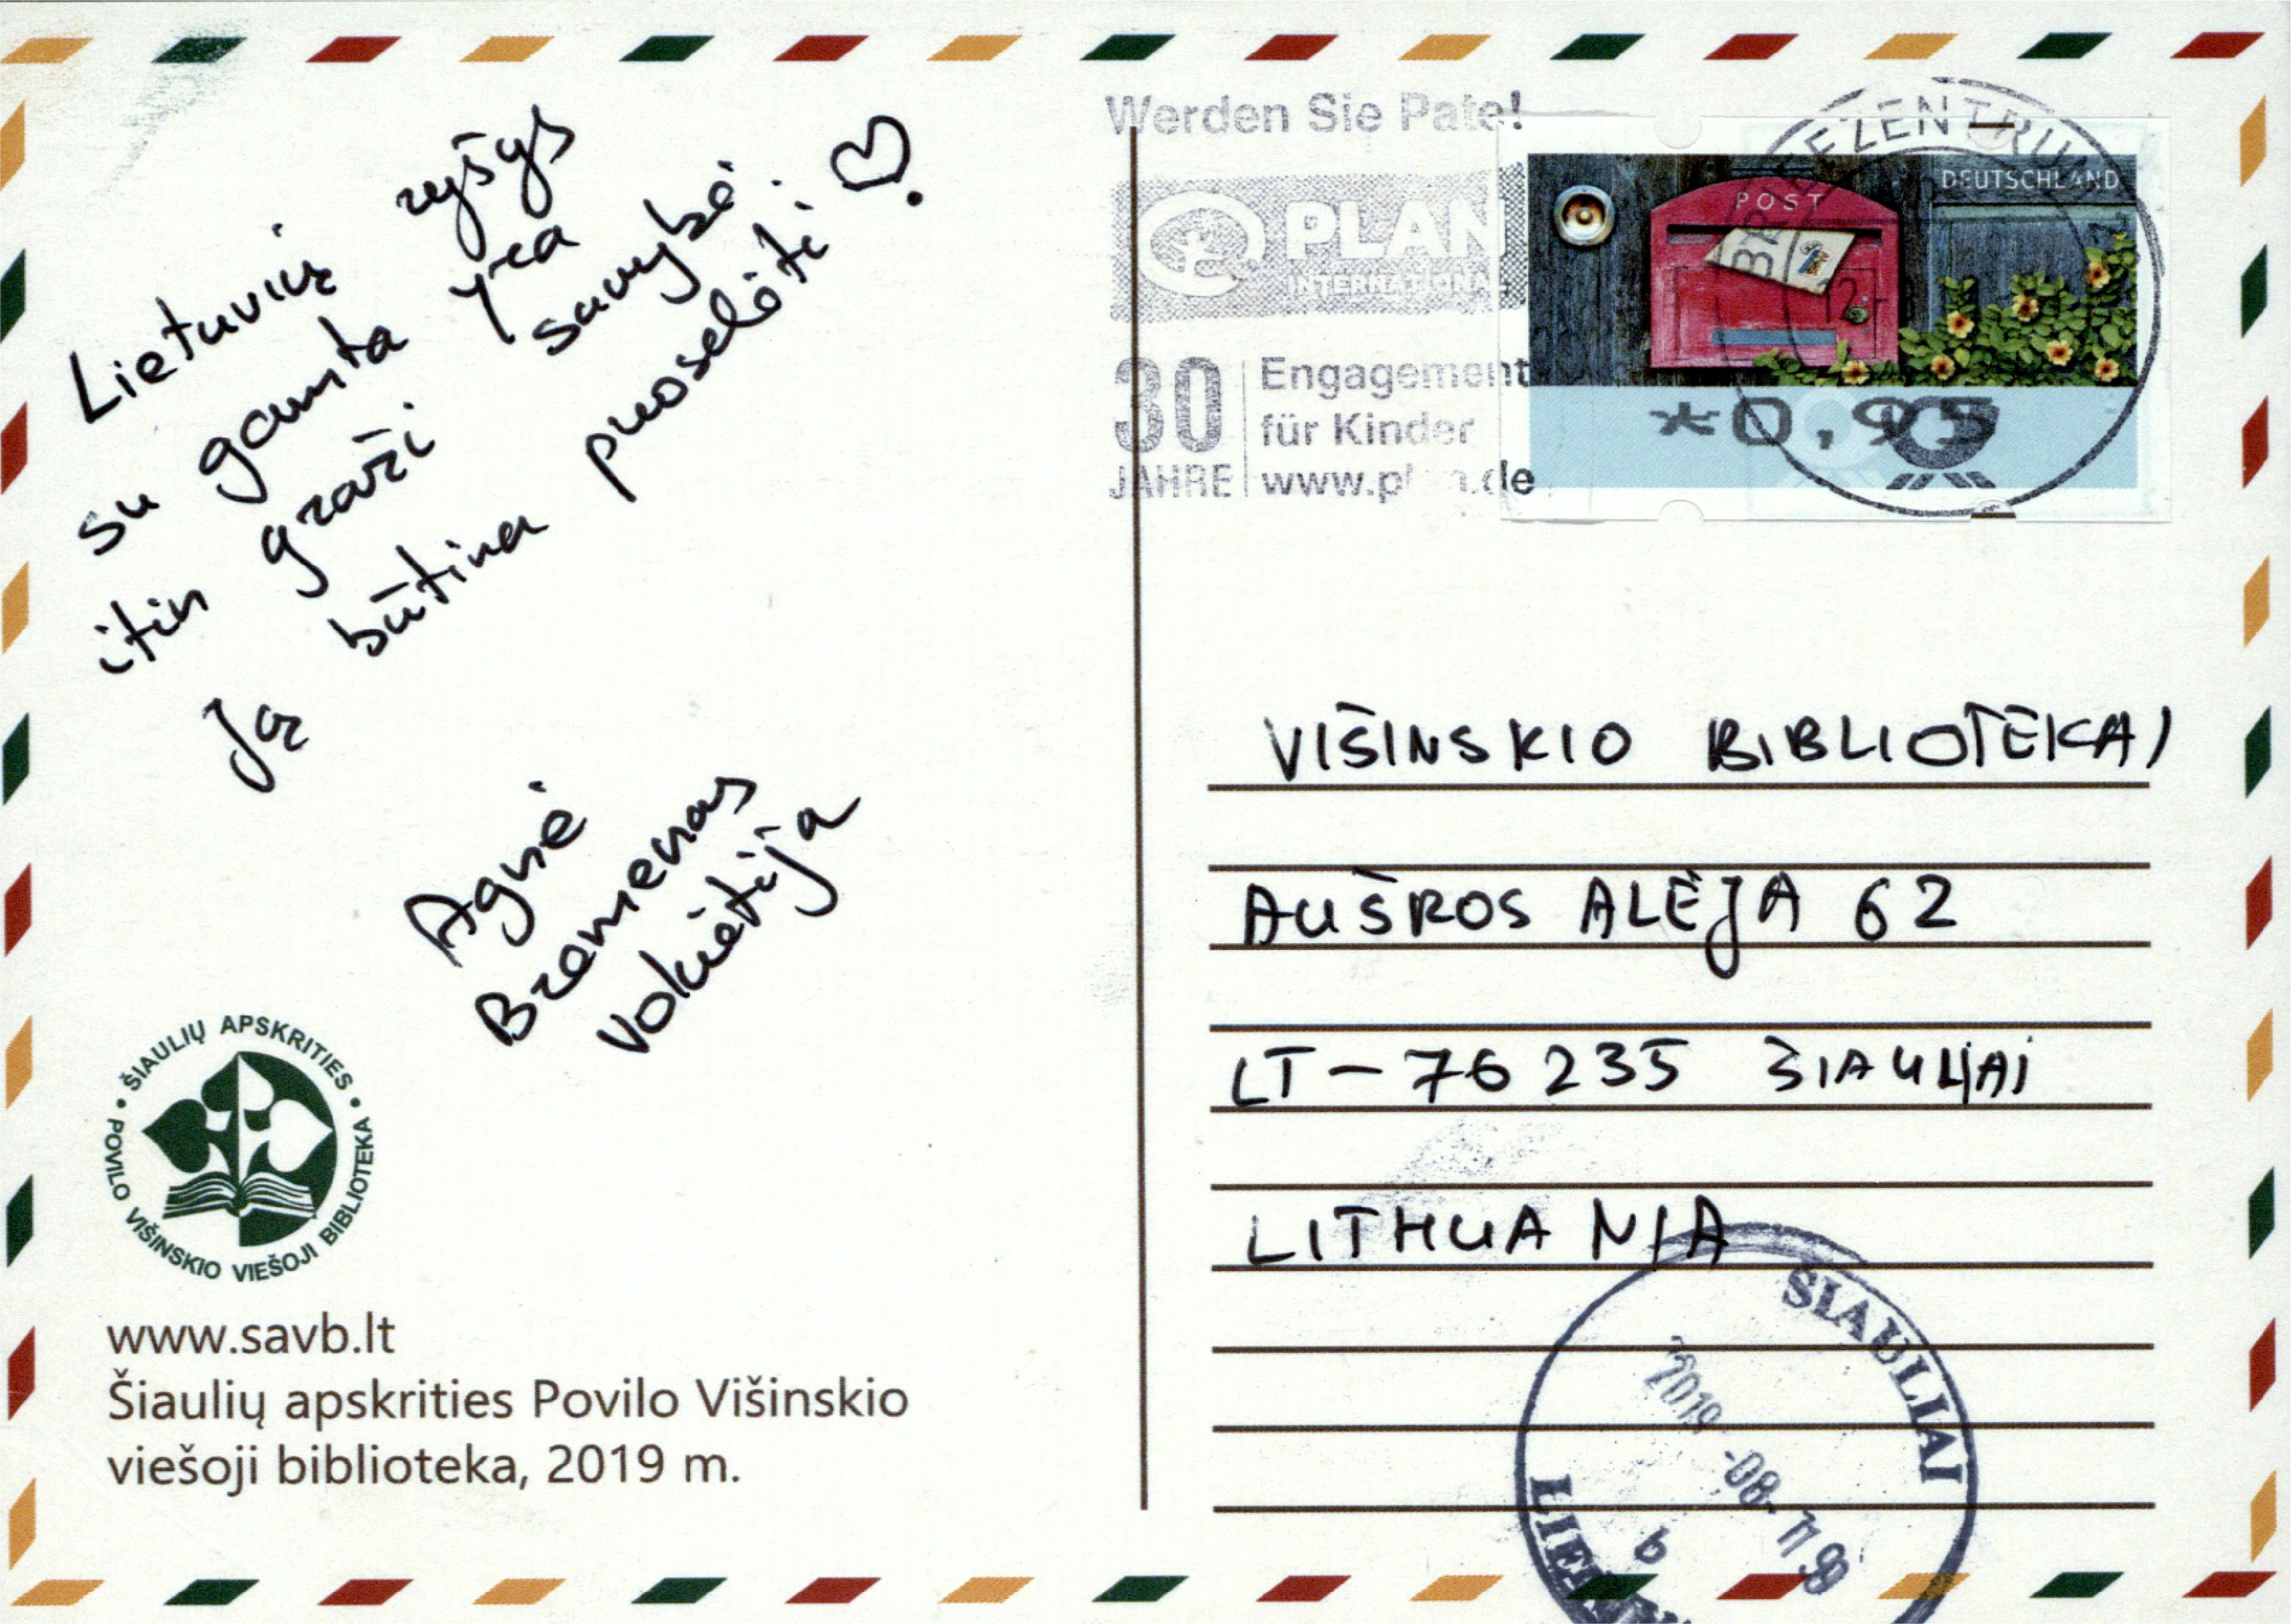 Lietuvių ryšys
su gamta yra
itin graži savybė.
Ją būtina puoselėti! ♡
Agnė
Bremenas
Vokietija
ŠIAULIŲ APSKRITIES • POVILO VIŠINSKIO VIEŠOJI BIBLIOTEKA •
www.savb.lt
Šiaulių apskrities Povilo Višinskio
viešoji biblioteka, 2019 m.
Werden Sie Pate!
PLAN
INTERNATIONAL
30 JAHRE
Engagement
für Kinder
www.plan.de
BRIEFZENTRUM
DEUTSCHLAND
POST
*0,95
VIŠINSKIO BIBLIOTEKAI
AUŠROS ALĖJA 62
LT-76235 ŠIAULIAI
LITHUANIA
ŠIAULIAI
2019-08-
b